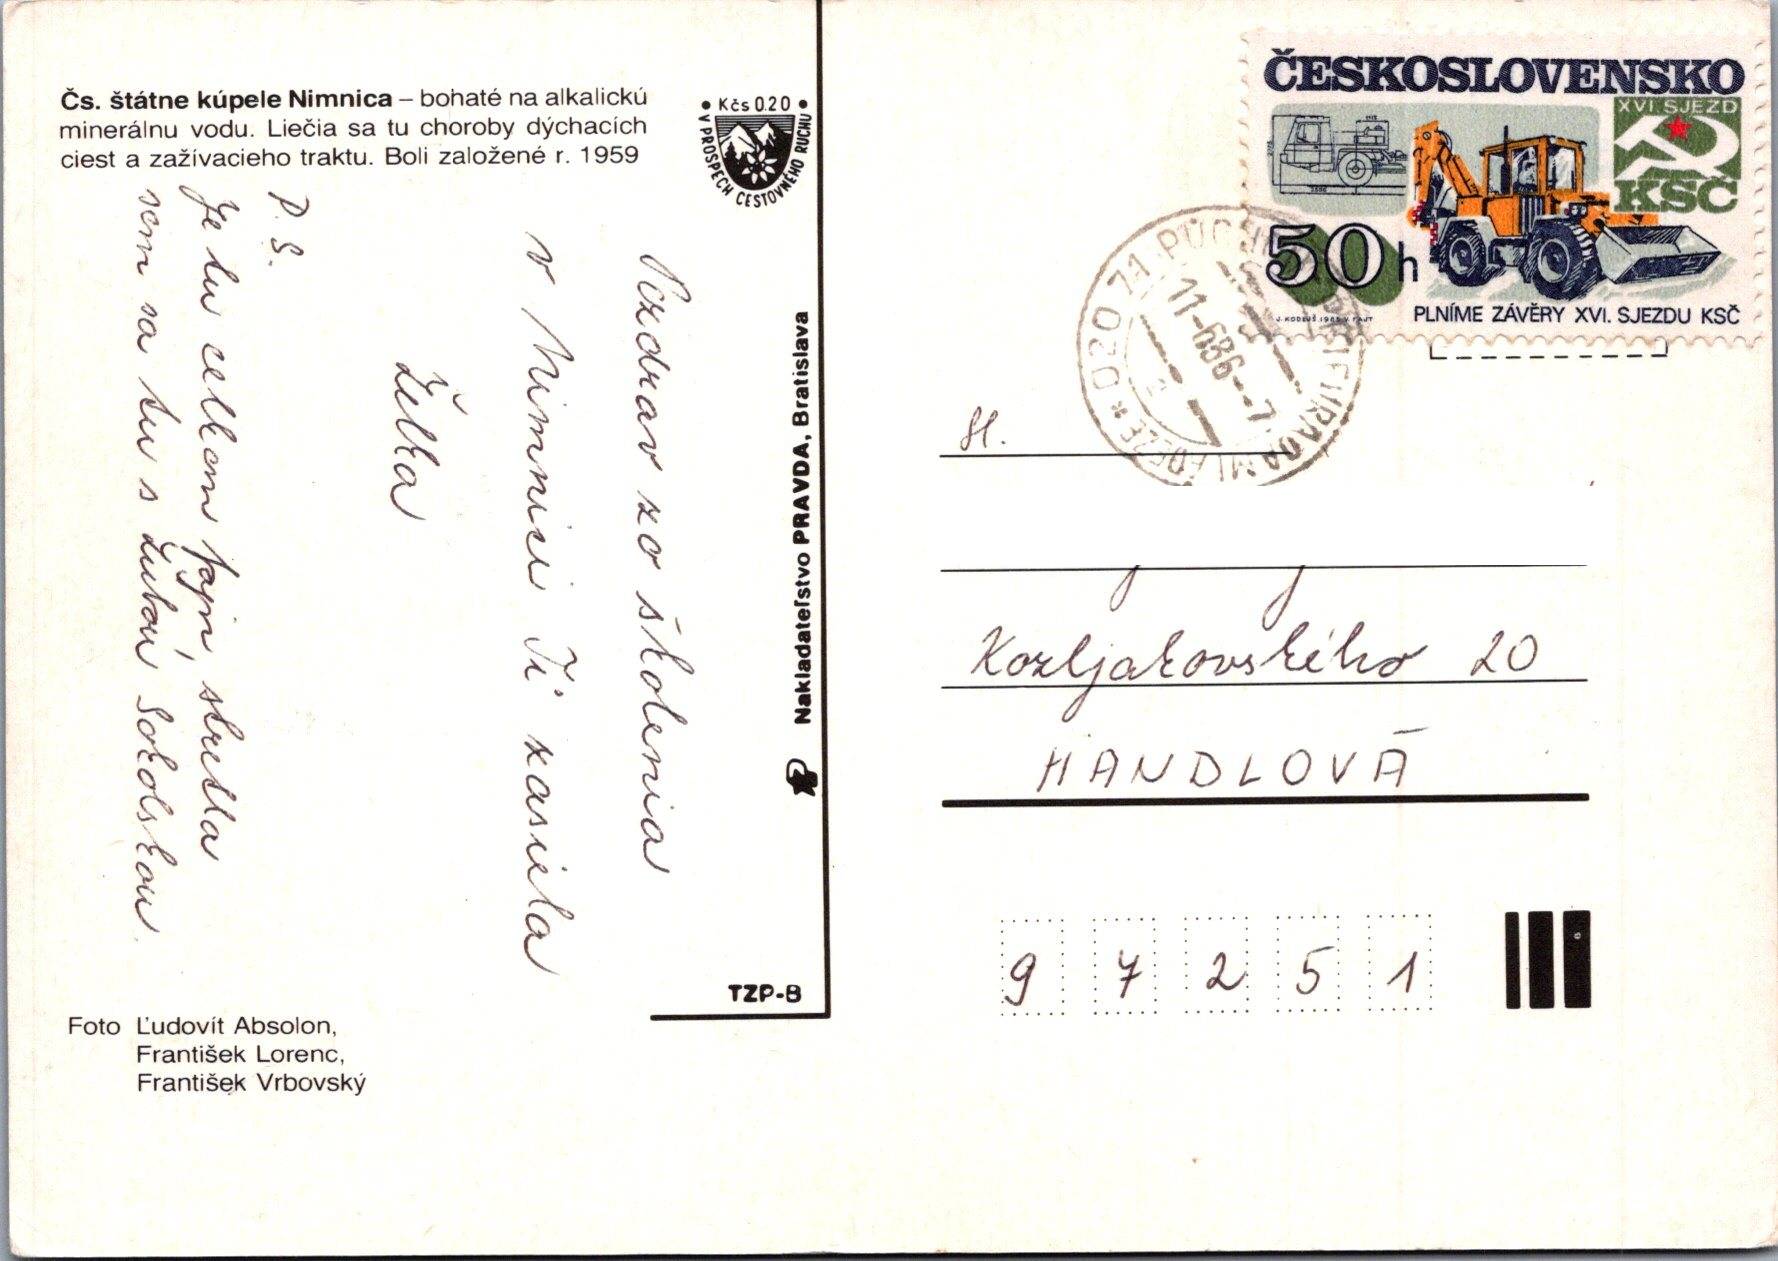 Čs. štátne kúpele Nimnica – bohaté na alkalickú
minerálnu vodu. Liečia sa tu choroby dýchacích
ciest a zažívacieho traktu. Boli založené r. 1959
• Kčs 0.20 •
V PROSPECH CESTOVNÉHO RUCHU
Pozdrav zo školenia
v Nimnici Ti zasiela
Želka
P.S.
Je tu celkom fajn, stretla
som sa tu s Ľubou Sokolskou.
Nakladateľstvo PRAVDA, Bratislava
TZP-8
Foto Ľudovít Absolon,
František Lorenc,
František Vrbovský
ČESKOSLOVENSKO
XVI. SJEZD
KSČ
50 h
PLNÍME ZÁVĚRY XVI. SJEZDU KSČ
J. KODEJŠ 1985 V. FAJT
020 71
11.-6.86-7
Kozljakovského 20
HANDLOVÁ
9 7 2 5 1